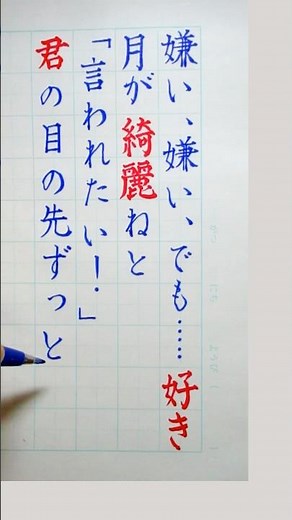 嫌い、嫌い、でも……好き
月が綺麗ねと
「言われたい！」
君の目の先ずっと